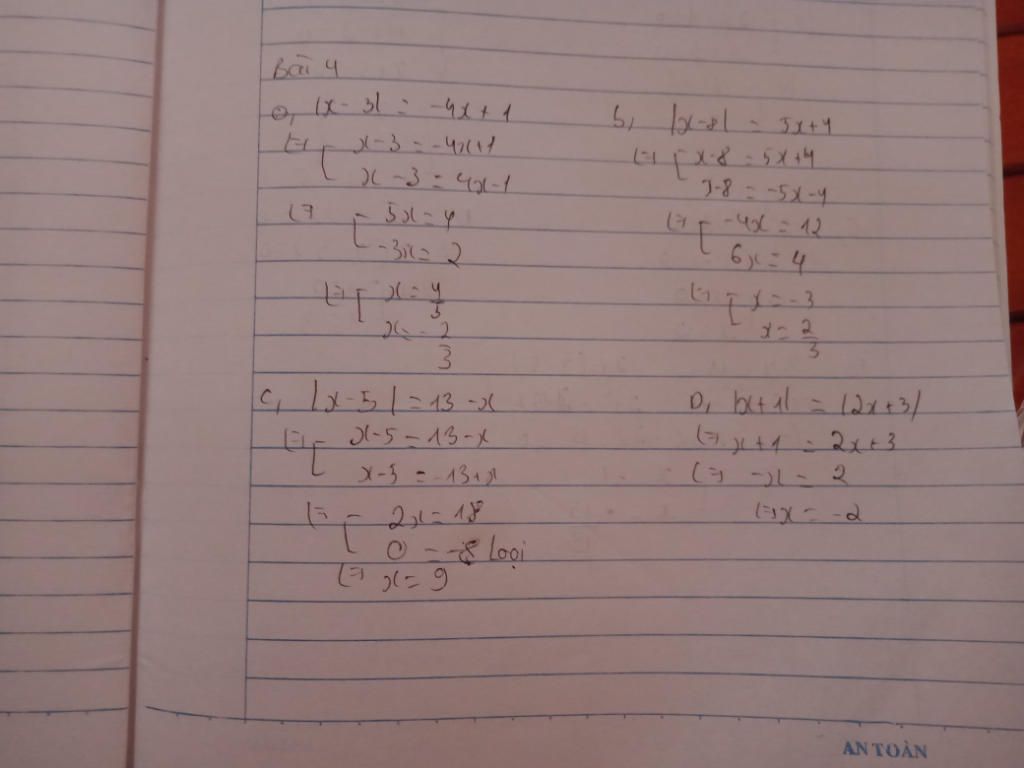 Bài 4
a, |x - 3| = -4x + 1
⇔ [ x - 3 = -4x+1
x - 3 = 4x-1
⇔ [ 5x = 4
-3x = 2
⇔ [ x = 4/5
x = -2/3
b, |x-8| = 5x+4
⇔ [ x-8 = 5x+4
x-8 = -5x-4
⇔ [ -4x = 12
6x = 4
⇔ [ x = -3
x = 2/3
C, |x-5| = 13 - x
⇔ [ x-5 = 13-x
x-5 = -13+x
⇔ [ 2x = 18
0 = -8 loại
⇔ x = 9
D, |x+1| = |2x+3|
⇔ x+1 = 2x+3
⇔ -x = 2
⇔ x = -2
AN TOÀN